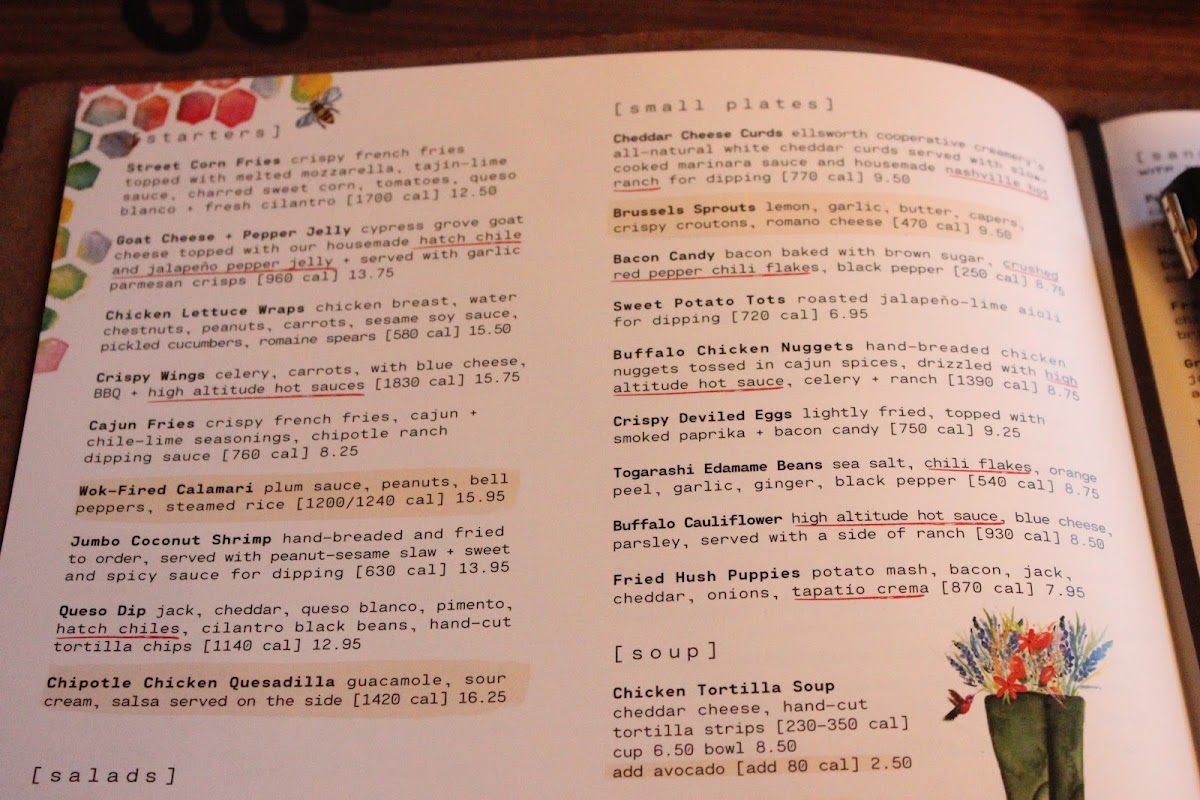 [starters]
Street Corn Fries crispy french fries
topped with melted mozzarella, tajín-lime
sauce, charred sweet corn, tomatoes, queso
blanco + fresh cilantro [1700 cal] 12.50
Goat Cheese + Pepper Jelly cypress grove goat
cheese topped with our housemade hatch chile
and jalapeño pepper jelly + served with garlic
parmesan crisps [960 cal] 13.75
Chicken Lettuce Wraps chicken breast, water
chestnuts, peanuts, carrots, sesame soy sauce,
pickled cucumbers, romaine spears [580 cal] 15.50
Crispy Wings celery, carrots, with blue cheese,
BBQ + high altitude hot sauces [1830 cal] 15.75
Cajun Fries crispy french fries, cajun +
chile-lime seasonings, chipotle ranch
dipping sauce [760 cal] 8.25
Wok-Fired Calamari plum sauce, peanuts, bell
peppers, steamed rice [1200/1240 cal] 15.95
Jumbo Coconut Shrimp hand-breaded and fried
to order, served with peanut-sesame slaw + sweet
and spicy sauce for dipping [630 cal] 13.95
Queso Dip jack, cheddar, queso blanco, pimento,
hatch chiles, cilantro black beans, hand-cut
tortilla chips [1140 cal] 12.95
Chipotle Chicken Quesadilla guacamole, sour
cream, salsa served on the side [1420 cal] 16.25
[salads]
[small plates]
Cheddar Cheese Curds ellsworth cooperative creamery's
all-natural white cheddar curds served with slow-
cooked marinara sauce and housemade nashville hot
ranch for dipping [770 cal] 9.50
Brussels Sprouts lemon, garlic, butter, capers,
crispy croutons, romano cheese [470 cal] 9.50
Bacon Candy bacon baked with brown sugar, crushed
red pepper chili flakes, black pepper [250 cal] 8.75
Sweet Potato Tots roasted jalapeño-lime aioli
for dipping [720 cal] 6.95
Buffalo Chicken Nuggets hand-breaded chicken
nuggets tossed in cajun spices, drizzled with high
altitude hot sauce, celery + ranch [1390 cal] 8.75
Crispy Deviled Eggs lightly fried, topped with
smoked paprika + bacon candy [750 cal] 9.25
Togarashi Edamame Beans sea salt, chili flakes, orange
peel, garlic, ginger, black pepper [540 cal] 8.75
Buffalo Cauliflower high altitude hot sauce, blue cheese,
parsley, served with a side of ranch [930 cal] 8.50
Fried Hush Puppies potato mash, bacon, jack,
cheddar, onions, tapatio crema [870 cal] 7.95
[soup]
Chicken Tortilla Soup
cheddar cheese, hand-cut
tortilla strips [230-350 cal]
cup 6.50 bowl 8.50
add avocado [add 80 cal] 2.50